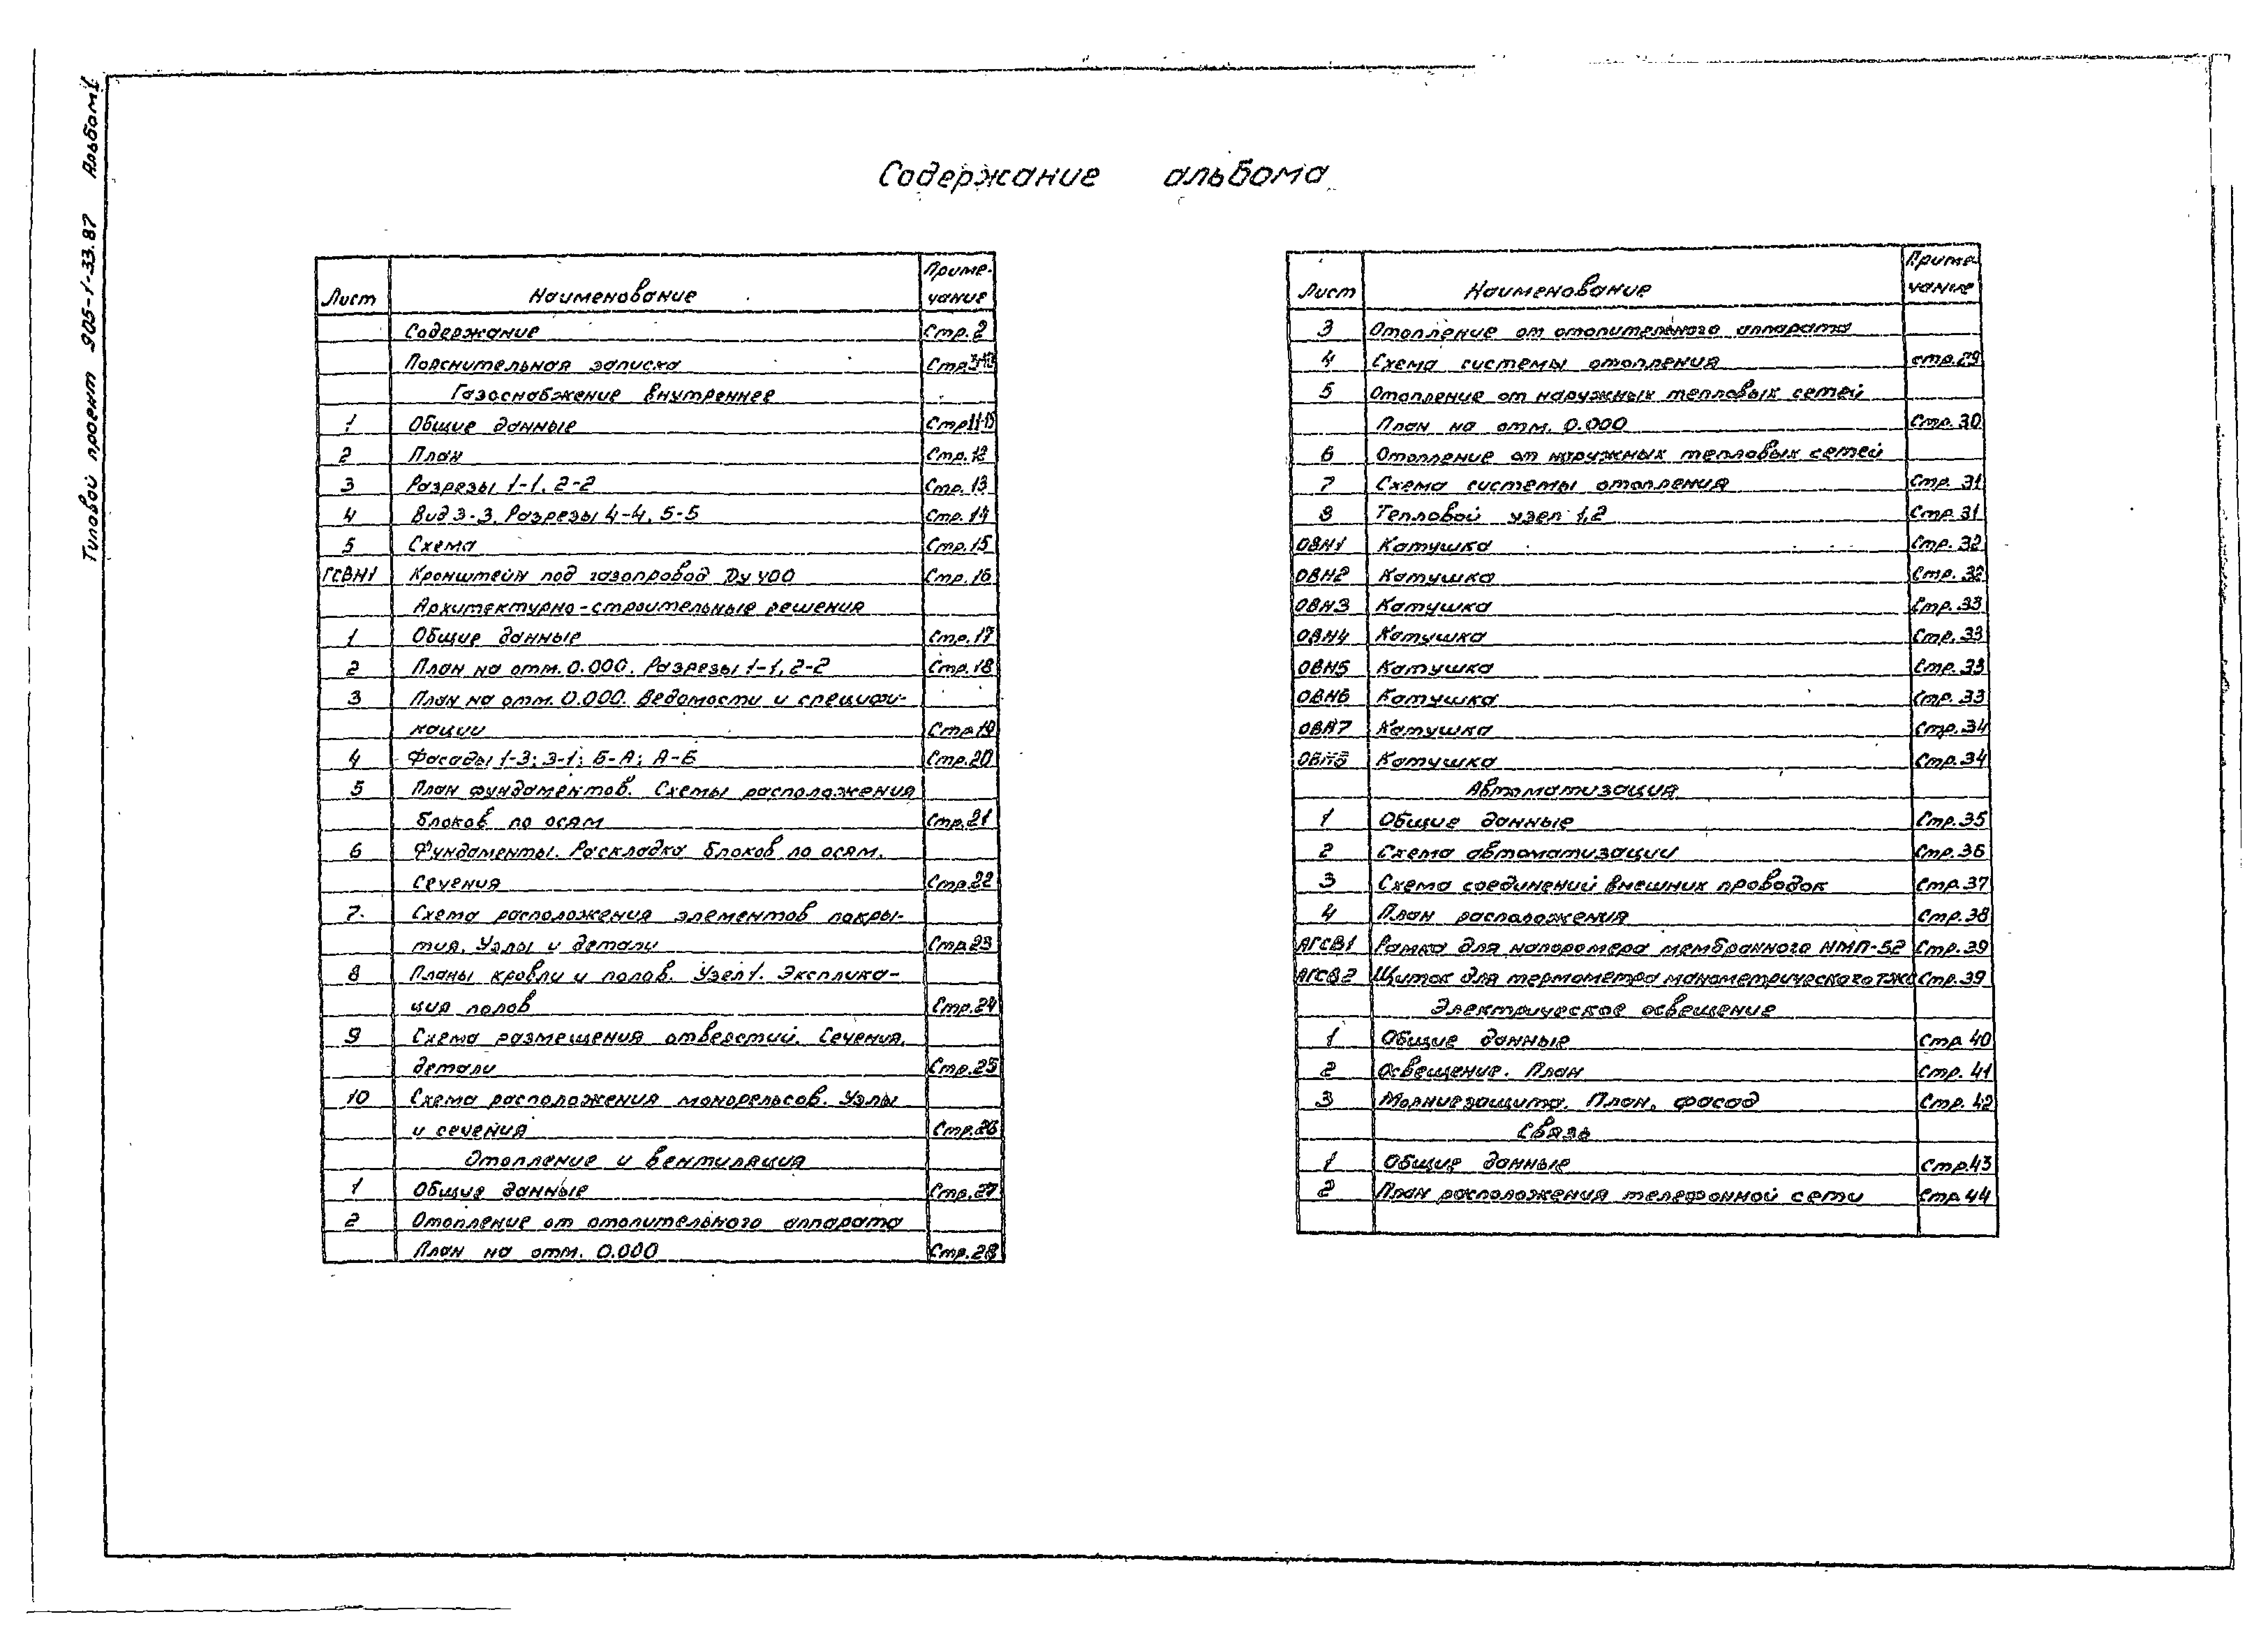 Типовой проект 905-1-33.87 Альбом I
Содержание альбома
Лист Наименование Примечание
Содержание Стр. 2
Пояснительная записка
Газоснабжение внутреннее
1 Общие данные
2 План Стр. 12
3 Разрезы 1-1, 2-2 Стр. 13
4 Вид 3-3. Разрезы 4-4, 5-5 Стр. 14
5 Схема Стр. 15
ГСВН1 Кронштейн под газопровод Ду 400 Стр. 16
Архитектурно-строительные решения
1 Общие данные Стр. 17
2 План на отм. 0.000. Разрезы 1-1, 2-2 Стр. 18
3 План на отм. 0.000. Ведомости и специфи-
кации Стр. 19
4 Фасады 1-3; 3-1; Б-А; А-Б Стр. 20
5 План фундаментов. Схемы расположения
блоков по осям Стр. 21
6 Фундаменты. Раскладка блоков по осям.
Сечения Стр. 22
7. Схема расположения элементов покры-
тия. Узлы и детали Стр. 23
8 Планы кровли и полов. Узел 1. Эксплика-
ция полов Стр. 24
9 Схема размещения отверстий. Сечения,
детали Стр. 25
10 Схема расположения монорельсов. Узлы
и сечения Стр. 26
Отопление и вентиляция
1 Общие данные Стр. 27
2 Отопление от отопительного аппарата
План на отм. 0.000 Стр. 28
Лист Наименование Примечание
3 Отопление от отопительного аппарата
4 Схема системы отопления стр. 29
5 Отопление от наружных тепловых сетей
План на отм. 0.000 Стр. 30
6 Отопление от наружных тепловых сетей
7 Схема системы отопления Стр. 31
8 Тепловой узел 1,2 Стр. 31
ОВН1 Катушка Стр. 32
ОВН2 Катушка Стр. 32
ОВН3 Катушка Стр. 33
ОВН4 Катушка Стр. 33
ОВН5 Катушка Стр. 33
ОВН6 Катушка Стр. 33
ОВН7 Катушка Стр. 34
ОВН8 Катушка Стр. 34
Автоматизация
1 Общие данные Стр. 35
2 Схема автоматизации Стр. 36
3 Схема соединений внешних проводок Стр. 37
4 План расположения Стр. 38
АГСВ1 Рамка для напоромера мембранного НМП-52 Стр. 39
АГСВ2 Щиток для термометра манометрического Стр. 39
Электрическое освещение
1 Общие данные Стр 40
2 Освещение. План Стр. 41
3 Молниезащита. План, фасад Стр. 42
Связь
1 Общие данные Стр. 43
2 План расположения телефонной сети Стр 44